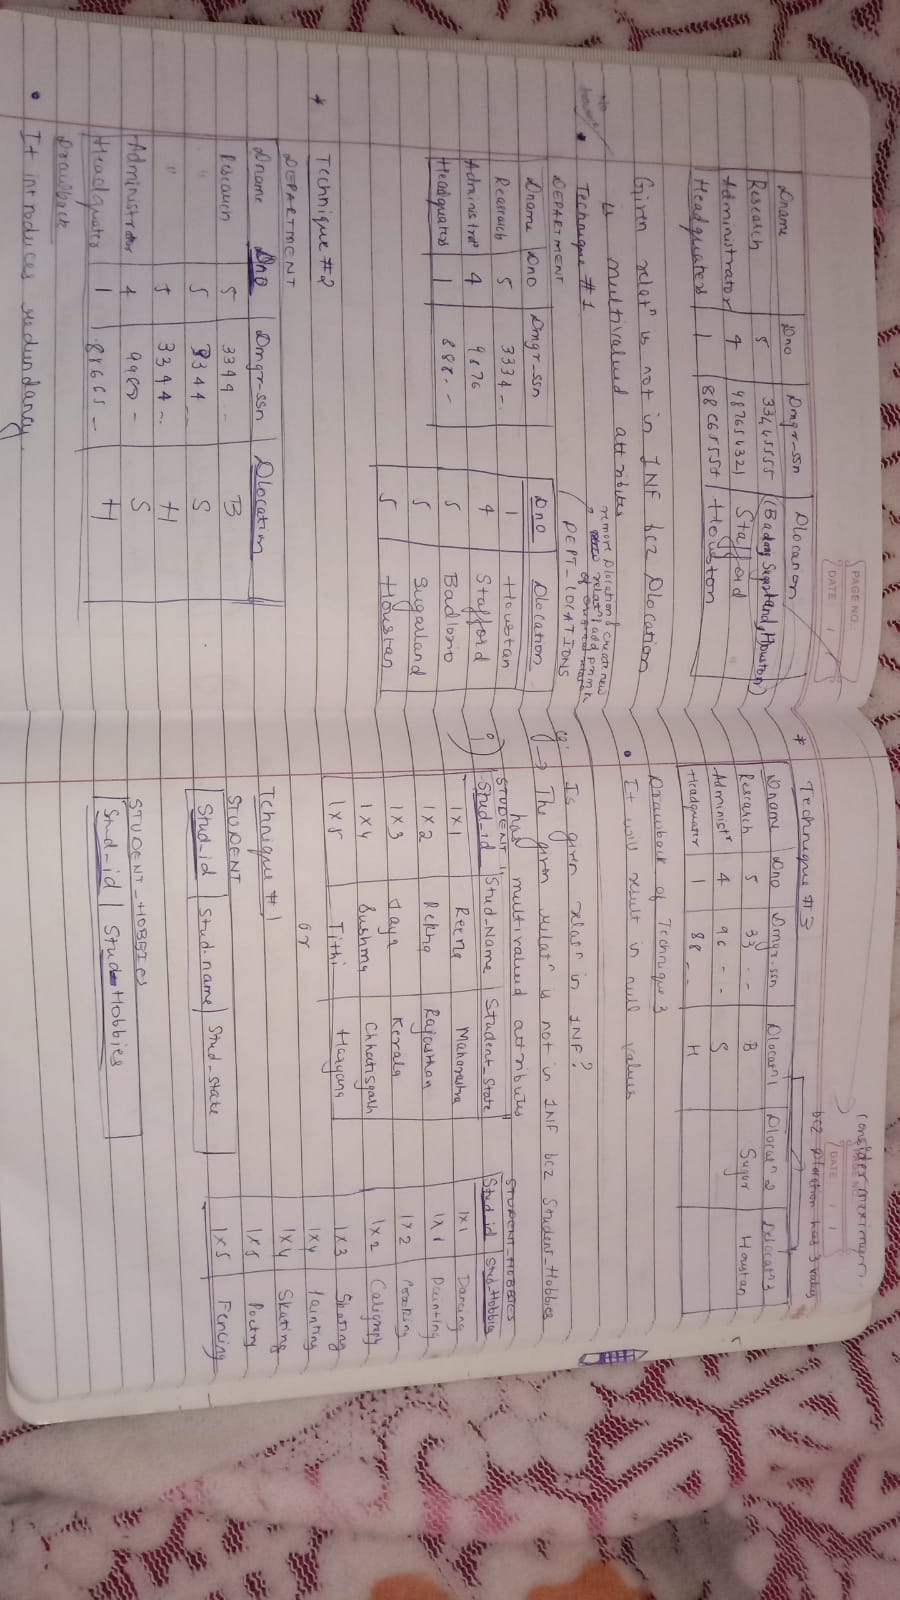 PAGE NO.
DATE
Dname Dno Dmgr-ssn Dlocation
Research 5 33445555 (
Administrator 4 987654321 Stafford
Headquaters 1 Houston
Given relatn is not in 1NF bcz Dlocation
is multivalued attributes
No
• Technique #1
remove Dlocation & create new
relatn, add
DEPARTMENT DEPT_LOCATIONS
Dname Dno Dmgr-ssn
Research 5 3334 -.
Administratr 4 9876
Headquaters 1 888 - -
Dno Dlocation
1 Houstan
4 Stafford
5 Badlario
5 Sugarland
5 Houstan
* Technique #2
DEPARTMENT
Dname Dno Dmgr-ssn Dlocation
Research 5 3344 .. B
" 5 3344 .. S
" 5 3344 .. H
Administrator 4 S
Headquater 1 H
Drawback
• It introduces redundancy.
PAGE NO.
DATE
consider maximum
bcz Dlocation has 3 values
* Technique #3
Dname Dno Dmgr-ssn Dlocatn1 Dlocatn2 Dlocatn3
Research 5 33 - - B Sugar Houstan
Administr 4 98 - - S
Headquater 1 88 - - H
Drawback of Technique 3
• It will result in null values
Q: Is given relatn in 1NF?
→ The given relatn is not in 1NF bcz Student_Hobbies
has multivalued attributes
i)
STUDENT
Stud_id Stud-Name Student_State
1X1 Reena Maharastra
1X2 Rekha Rajasthan
1X3 Jaya Kerala
1X4 Sushma Chhatisgarh
1X5 Tithi Haryana
STUDENT_HOBBIES
Stud_id Stud_Hobbies
1X1 Dancing
1X1 Painting
1X2 Cooking
1X2 Caligrapy
1X3 Skating
1X4 Painting
1X4 Skating
1X5 Poetry
1X5 Fencing
or
Technique #1
STUDENT
Stud_id Stud.name Stud_state
STUDENT_HOBBIES
Stud_id Stud_Hobbies